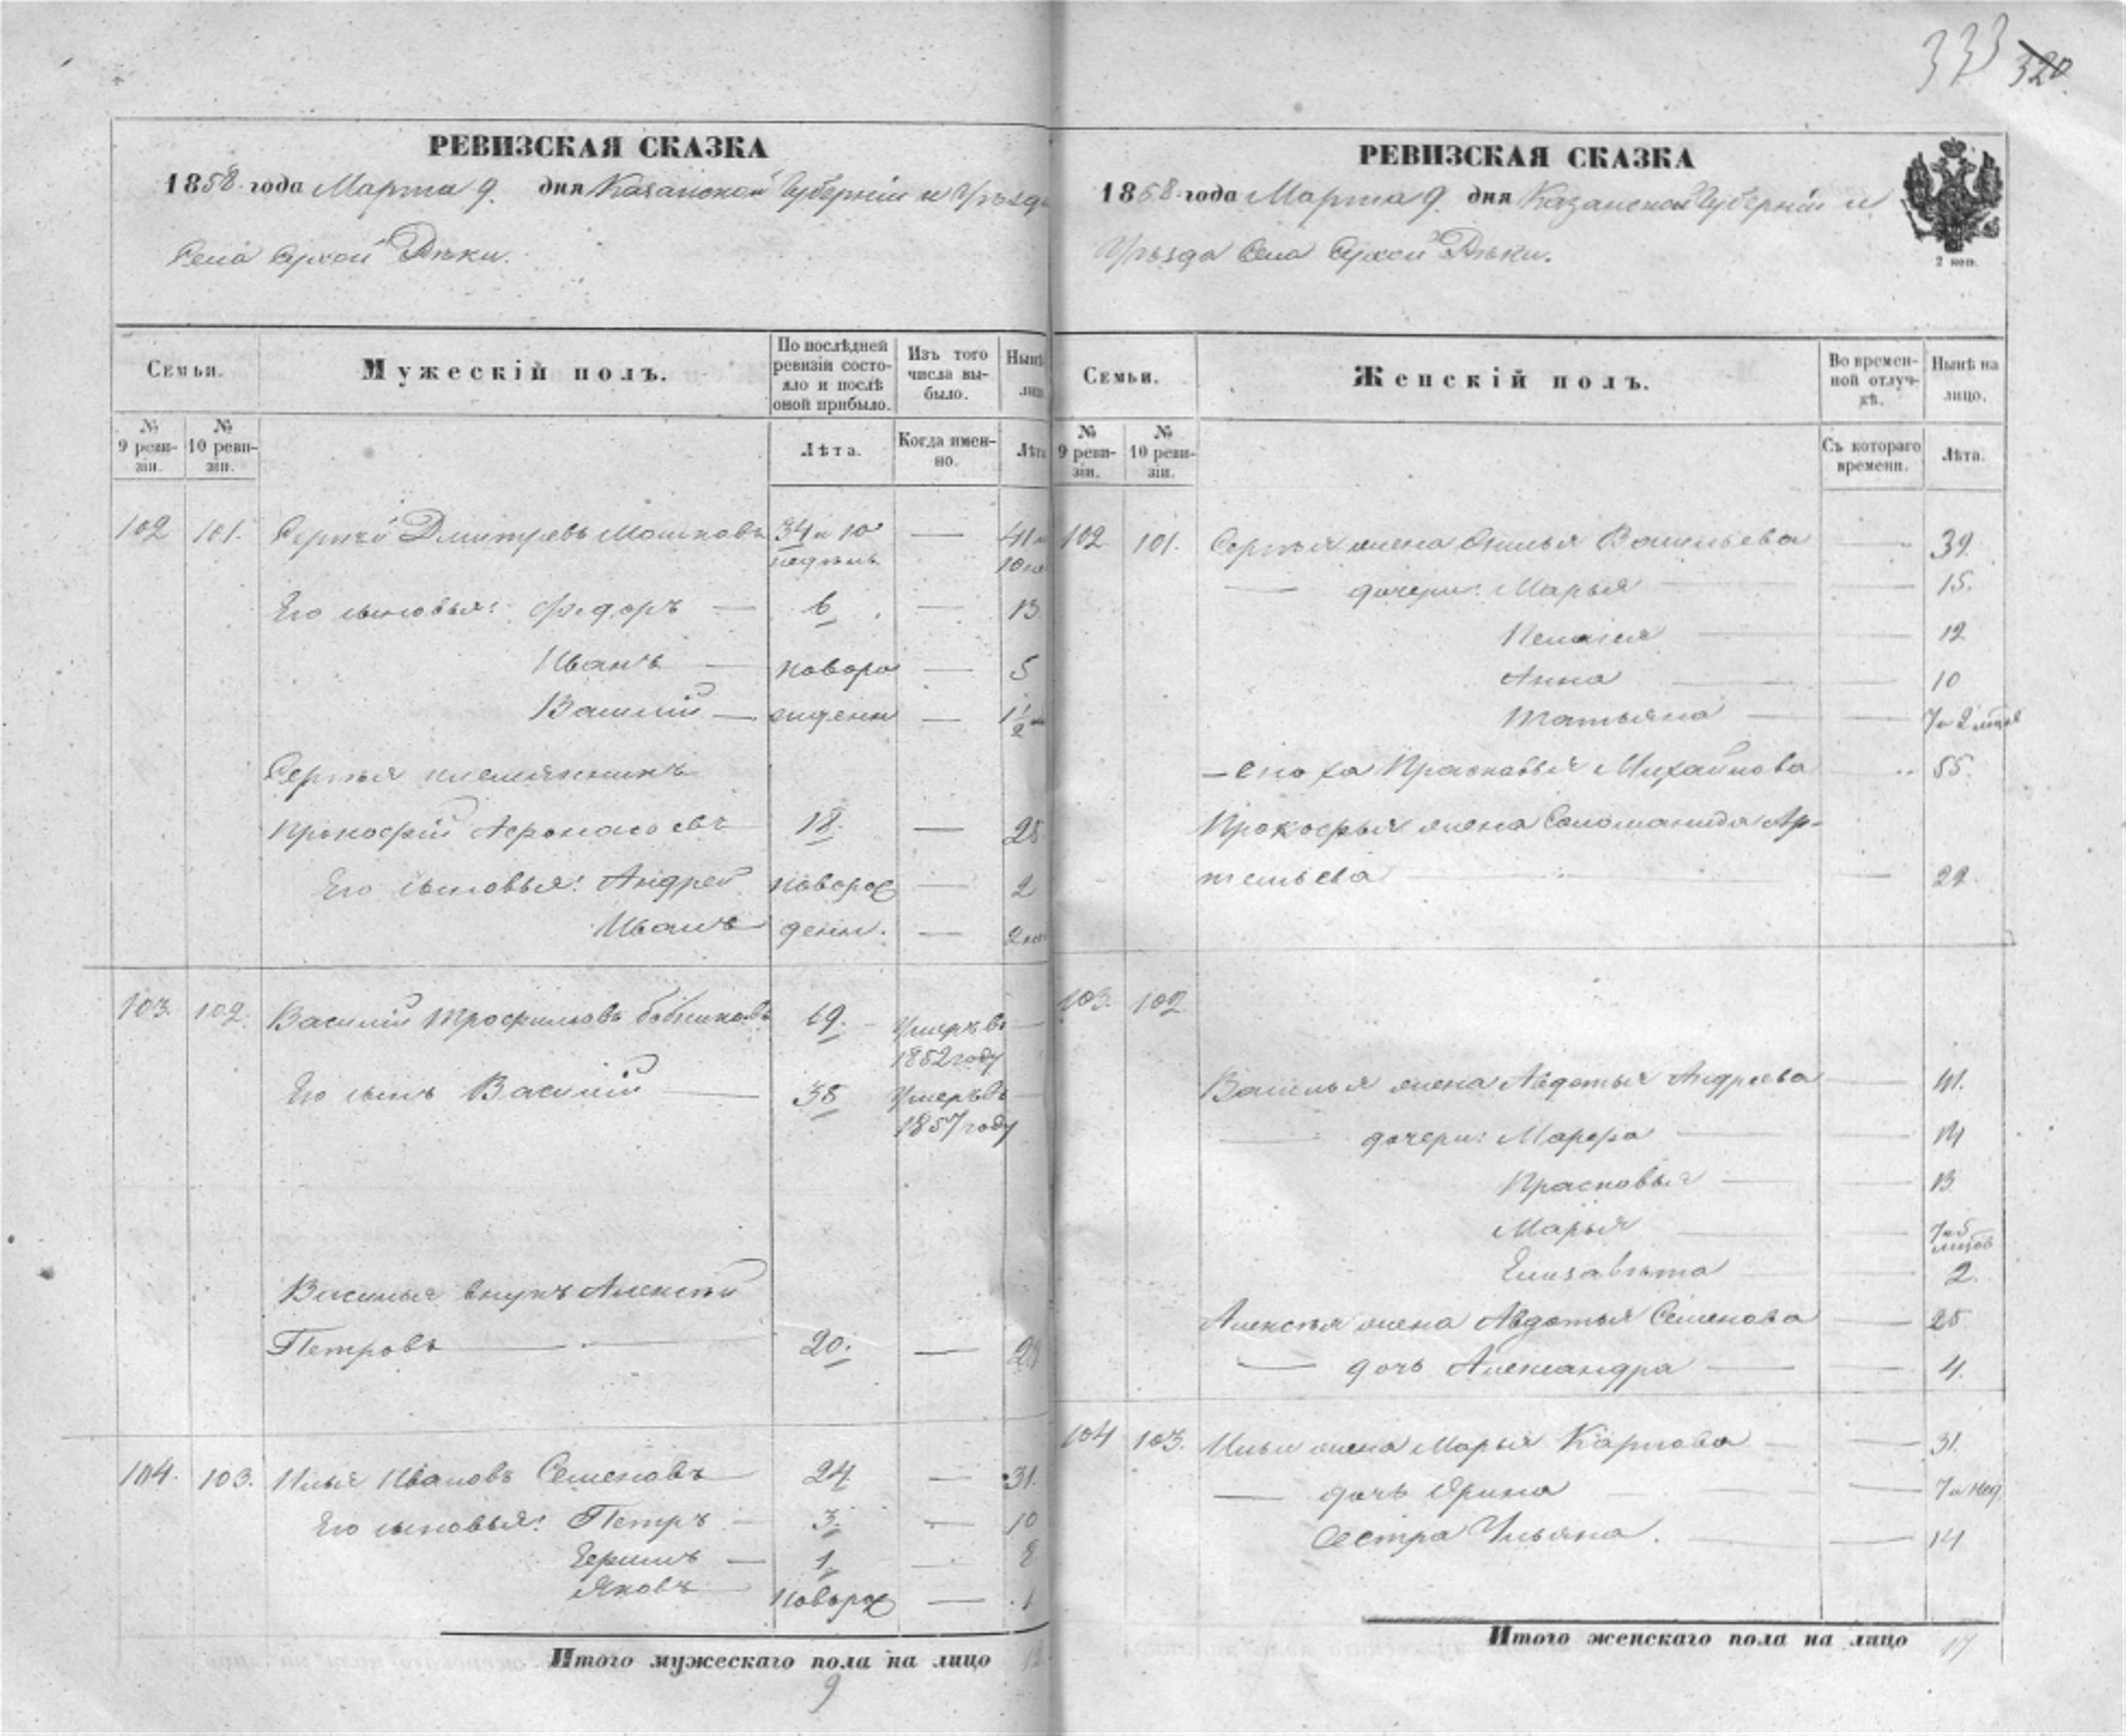 333 320.
РЕВИЗСКАЯ СКАЗКА
1858 года Марта 9. дня Казанской Губерніи и Уѣзда
Села Сухой Рѣки.
Семьи.
Мужескій полъ.
По послѣдней ревизіи состояло и послѣ оной прибыло.
Изъ того числа выбыло.
Нынѣ лиц
№ 9 ревизіи.
№ 10 ревизіи.
Лѣта.
Когда именно.
Лѣта
102 101. Сергѣй Дмитревъ Мошковъ 34 и 10 недѣль — 41 и 10 не
Его сыновья: Федоръ — 6 — 13
Иванъ — новоро — 5
Василій — жденн — 1 1/2
Сергѣя племянникъ
Прокофій Афонасьевъ 18. — 25
Его сыновья: Андрей новорож — 2
Иванъ денн. — 2 не
103. 102. Василій Трофимовъ 69. Умеръ въ 1852 году —
Его сынъ Василій — 38 Умеръ въ 1857 году —
Василья внукъ Алексѣй
Петровъ — 20. — 27
104. 103. Илья Ивановъ Семеновъ 24 — 31.
Его сыновья: Петръ — 3. — 10
Ермилъ — 1. — 8
Яковъ новорож — 1
Итого мужескаго пола на лицо 12
9
РЕВИЗСКАЯ СКАЗКА
1858 года Марта 9. дня Казанской Губерніи и
Уѣзда Села Сухой Рѣки.
2 коп.
Семьи.
Женскій полъ.
Во временной отлучкѣ.
Нынѣ на лицо.
№ 9 ревизіи.
№ 10 ревизіи.
Съ котораго времени.
Лѣта.
102 101. Сергѣя жена Васильева — 39.
— дочери: Марья — 15.
Пелагея — 12
Анна — 10
Татьяна — 7 и 2 мѣся
— сноха Прасковья Михайлова — 55.
Прокофья жена Соломанида Ар-
тельева — 22.
103. 102
Василья жена Авдотья Андреева — 41.
— дочери: Марфа — 14
Прасковья — 13
Марья — 7 и 5 мѣсяв
Елизавѣта — 2.
Алексѣя жена Авдотья Семенова — 25
— дочь Александра — 4.
104 103. Ильи жена Марья Карпова — 31.
— дочь Орина — 7 и нед.
Сестра Ульяна. — 14
Итого женскаго пола на лицо 17